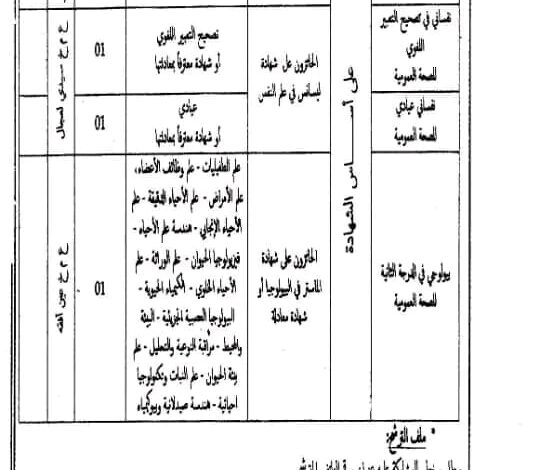 نفساني في تصحيح التعبير
اللغوي
للصحة العمومية
على أساس الشهادة
الحائزون على شهادة
ليسانس في علم النفس
تصحيح التعبير اللغوي
أو شهادة معترفا بمعادلتها
01
ع م ج سيدي لعجال
نفساني عيادي
للصحة العمومية
عيادي
أو شهادة معترفا بمعادلتها
01
بيولوجي في الدرجة الثانية
للصحة العمومية
الحائزون على شهادة
الماستر في البيولوجيا أو
شهادة معادلة
علم الطفيليات - علم وظائف الأعضاء،
علم الأمراض - علم الأحياء الدقيقة - علم
الأحياء الإنجابي - هندسة علم الأحياء -
فيزيولوجيا الحيوان - علم الوراثة - علم
الأحياء الخلوي - الكيمياء الحيوية -
البيولوجيا العصبية الجزيئية - البيئة
والمحيط - مراقبة النوعية والتحليل - علم
بيئة الحيوان - علم النبات وتكنولوجيا
احيائية - هندسة صيدلانية وبيوكمياء
01
ع م ج عين أفقه
• ملف الترشح: